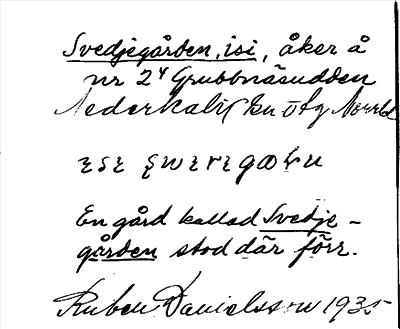 Svedjegården, isi, åker å
nr 2⁴ Grubbnäsudden
Nederkalix sn Norrb.
En gård kallad Svedje-
gården stod där förr.
Ruben Danielsson 1935